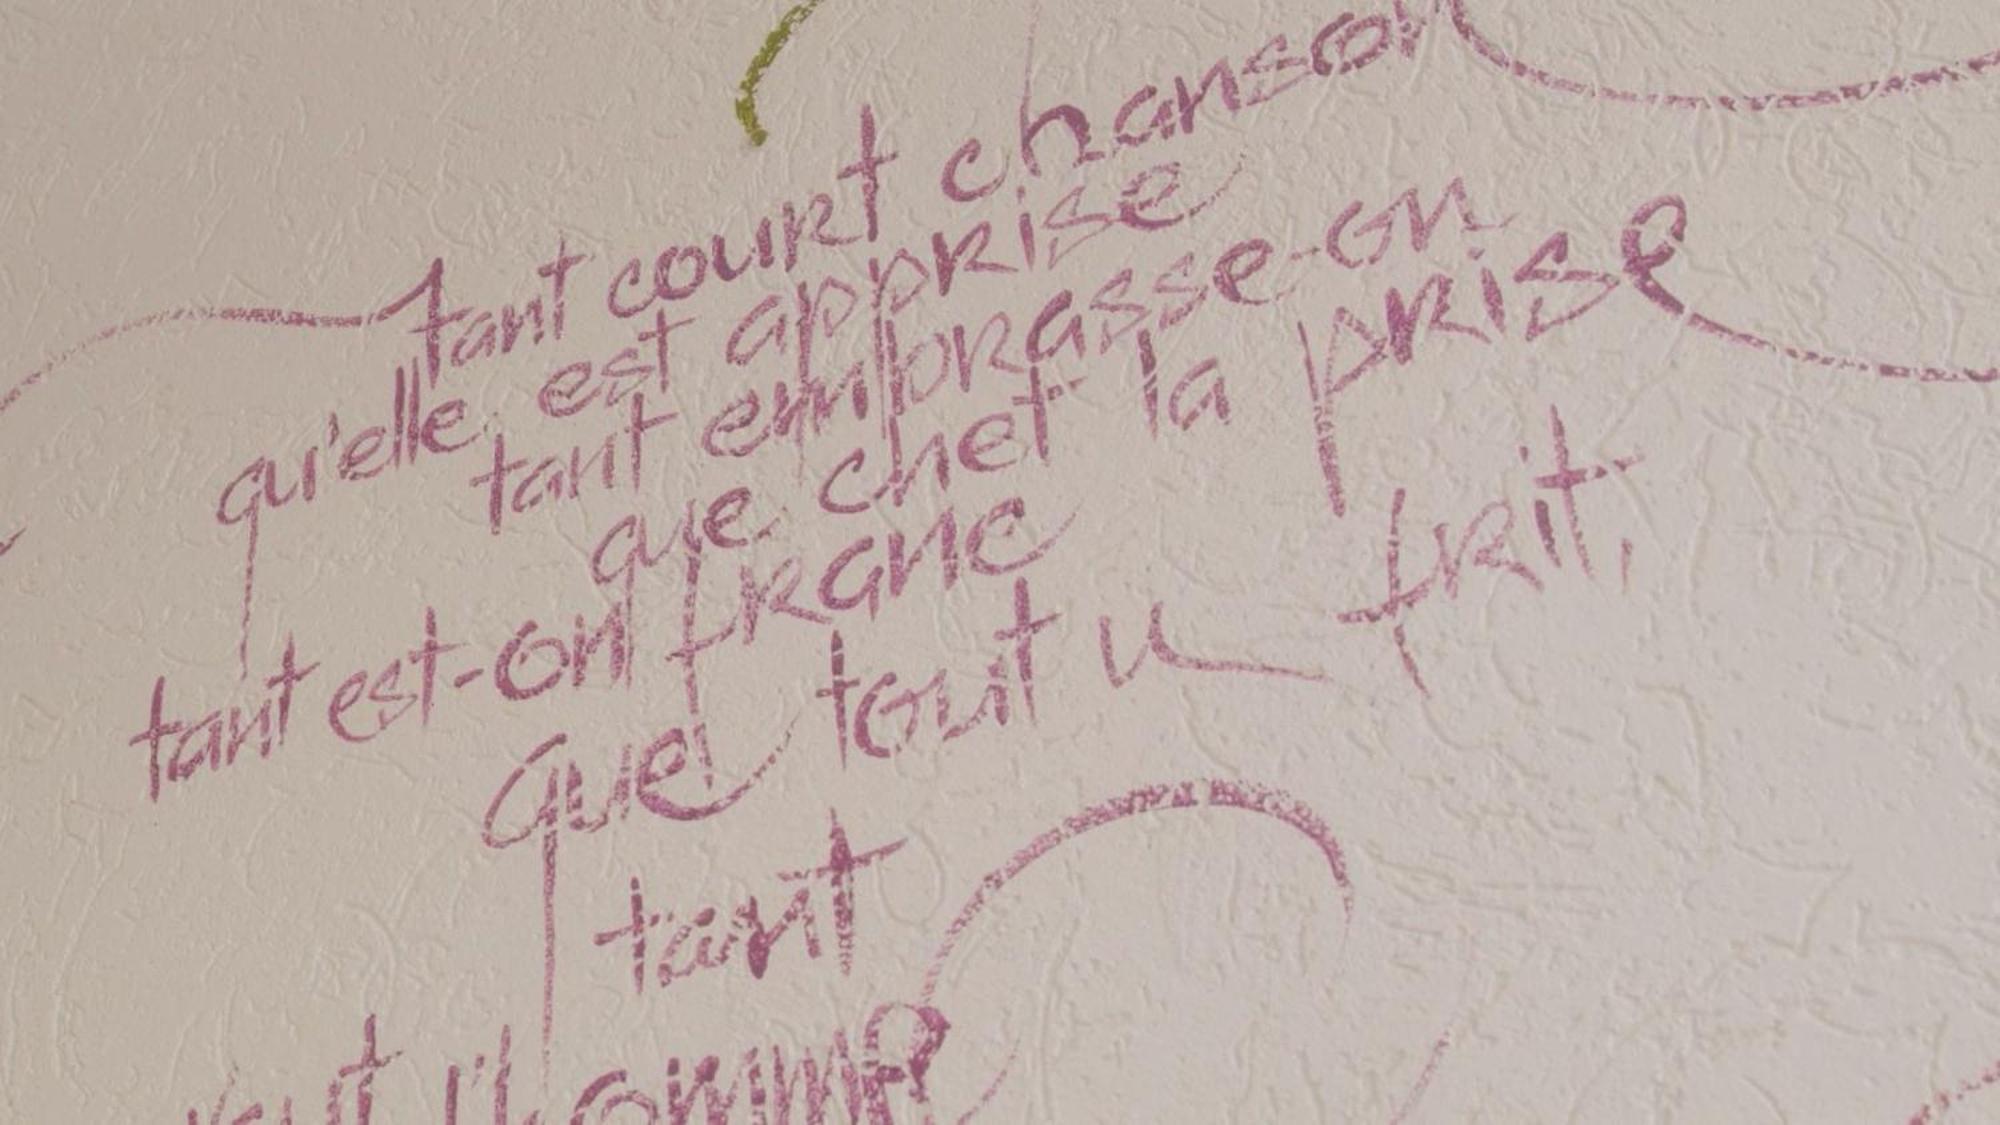 tant court chanson
qu'elle est apprise
tant embrasse-on
que chet la prise
tant est-on franc
que tout u frit,
tant
vaut l'homme